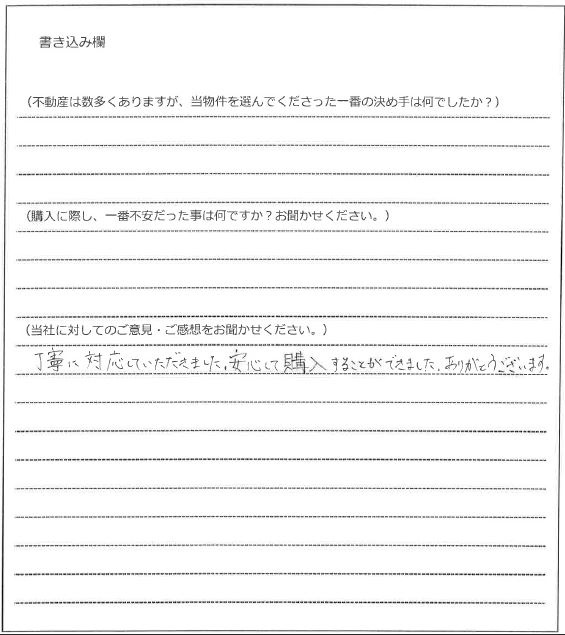 書き込み欄
（不動産は数多くありますが、当物件を選んでくださった一番の決め手は何でしたか？）
（購入に際し、一番不安だった事は何ですか？お聞かせください。）
（当社に対してのご意見・ご感想をお聞かせください。）
丁寧に対応していただきました。安心して購入することができました。ありがとうございます。